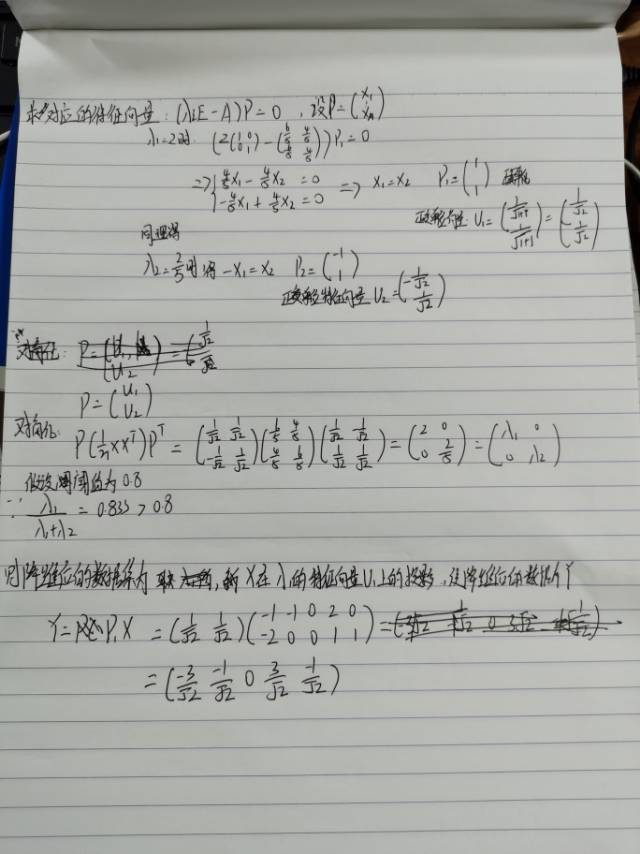 求对应的特征向量: (λE-A)P=0, 设P=(x₁ x₂)
λ₁=2时 (2(1 0 0 1)-(6/5 4/5 4/5 6/5))P₁=0
=> { 4/5x₁ - 4/5x₂ =0 -4/5x₁ + 4/5x₂ =0 => x₁=x₂ P₁=(1 1)
U₁=(1/√1+1 1/√1+1)=(1/√2 1/√2)
同理得
λ₂=2/5时 得 -x₁=x₂ P₂=(-1 1)
特征向量 U₂=(-1/√2 1/√2)
对角化:
P=(U₁ U₂)
对角化 P(1/m XXᵀ)Pᵀ = (1/√2 1/√2 -1/√2 1/√2)(6/5 4/5 4/5 6/5)(1/√2 1/√2 1/√2 1/√2)=(2 0 0 2/5)=(λ₁ 0 0 λ₂)
假设阈值为0.8
∵ λ₁/λ₁+λ₂ = 0.833 > 0.8
则降维后的数据为 X在λ₁的特征向量U₁上的投影, 设降维后的数据为Y
Y=P₁X = (1/√2 1/√2)(-1 -1 0 2 0 -2 0 0 1 1)
=(-3/√2 -1/√2 0 3/√2 1/√2)